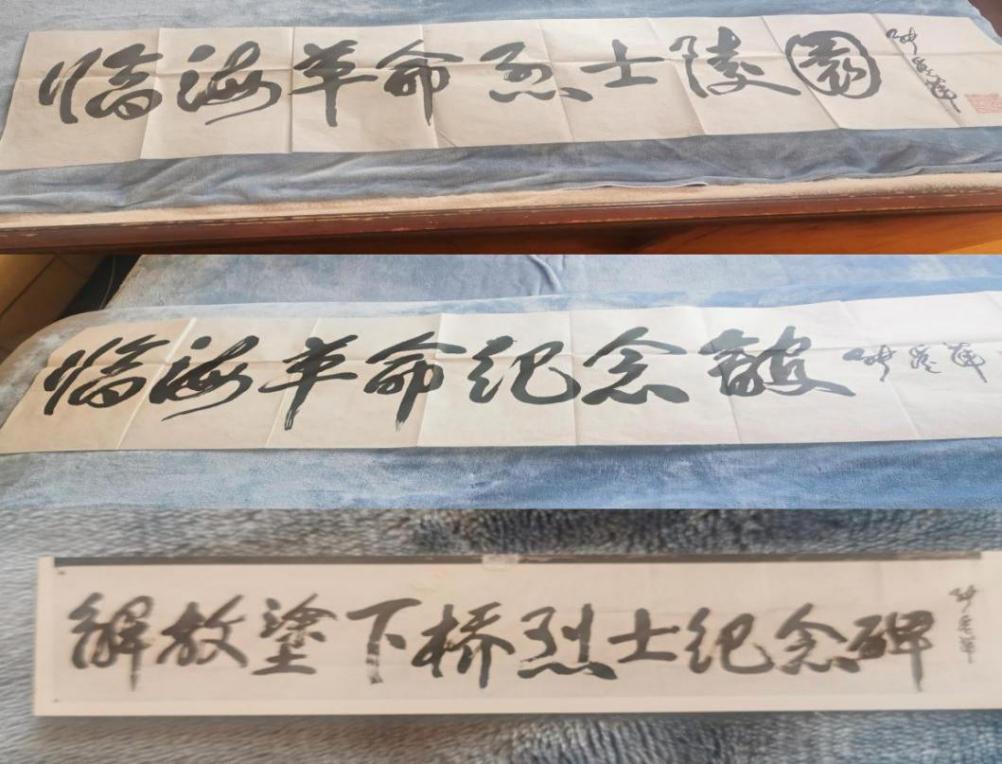 临海革命烈士陵园
临海革命纪念馆
解放塗下桥烈士纪念碑